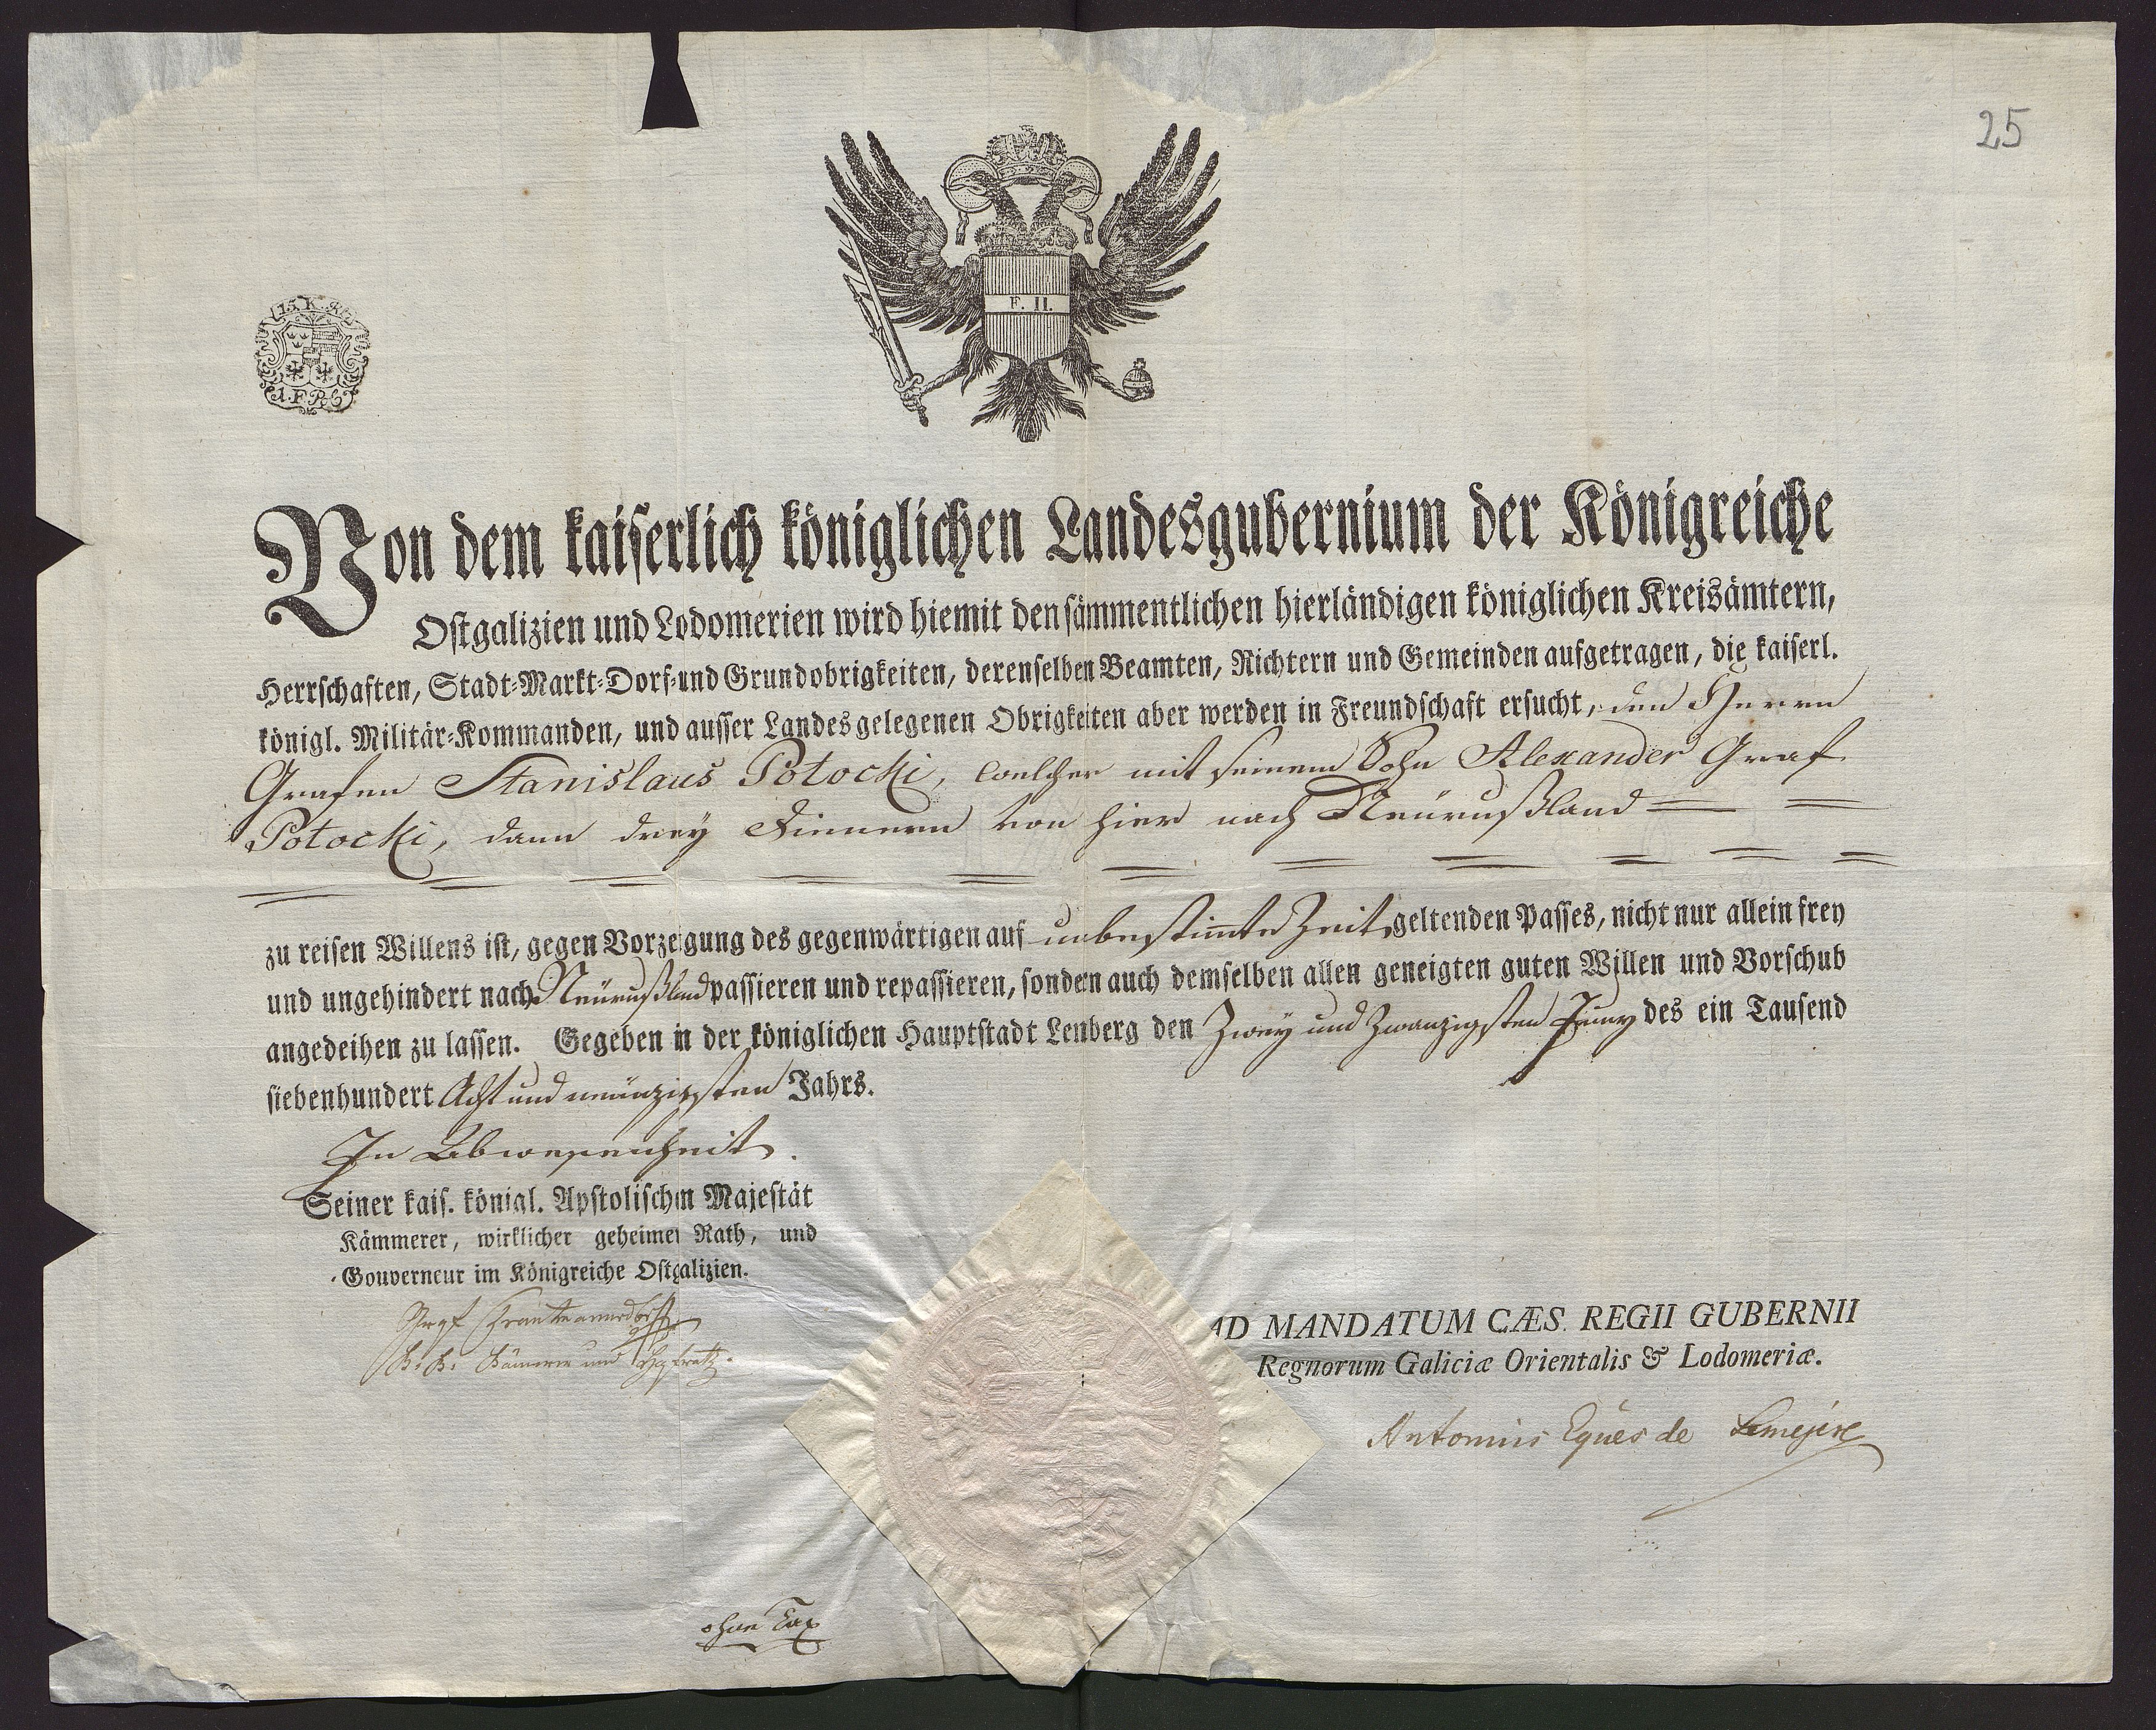 25
15. K. R.
F. II.
Von dem kaiserlich königlichen Landesgubernium der Königreiche
Ostgalizien und Lodomerien wird hiemit den sämmentlichen hierländigen königlichen Kreisämtern,
Herrschaften, Stadt-Markt-Dorf-und Grundobrigkeiten, derenselben Beamten, Richtern und Gemeinden aufgetragen, die kaiserl.
königl. Militär-Kommanden, und ausser Landes gelegenen Obrigkeiten aber werden in Freundschaft ersucht, den Herrn
Grafen Stanislaus Potocki, welcher mit seinem Sohn Alexander Graf
Potocki, dann drey Dienern von hier nach Neürußland
zu reisen Willens ist, gegen Vorzeigung des gegenwärtigen auf unbestimte Zeit geltenden Passes, nicht nur allein frey
und ungehindert nach Neürußland passieren und repassieren, sondern auch demselben allen geneigten guten Willen und Vorschub
angedeihen zu lassen. Gegeben in der königlichen Hauptstadt Lemberg den Zwey und Zwanzigsten Juny des ein Tausend
siebenhundert Acht und neünzigsten Jahrs.
In Abwesenheit
Seiner kais. königl. Apstolischen Majestät
Kämmerer, wirklicher geheimer Rath, und
Gouverneur im Königreiche Ostgalizien.
k: k: Kämerer und
AD MANDATUM CÆS. REGII GUBERNII
Regnorum Galiciæ Orientalis & Lodomeriæ.
Antonius Eques de
ohne Tax